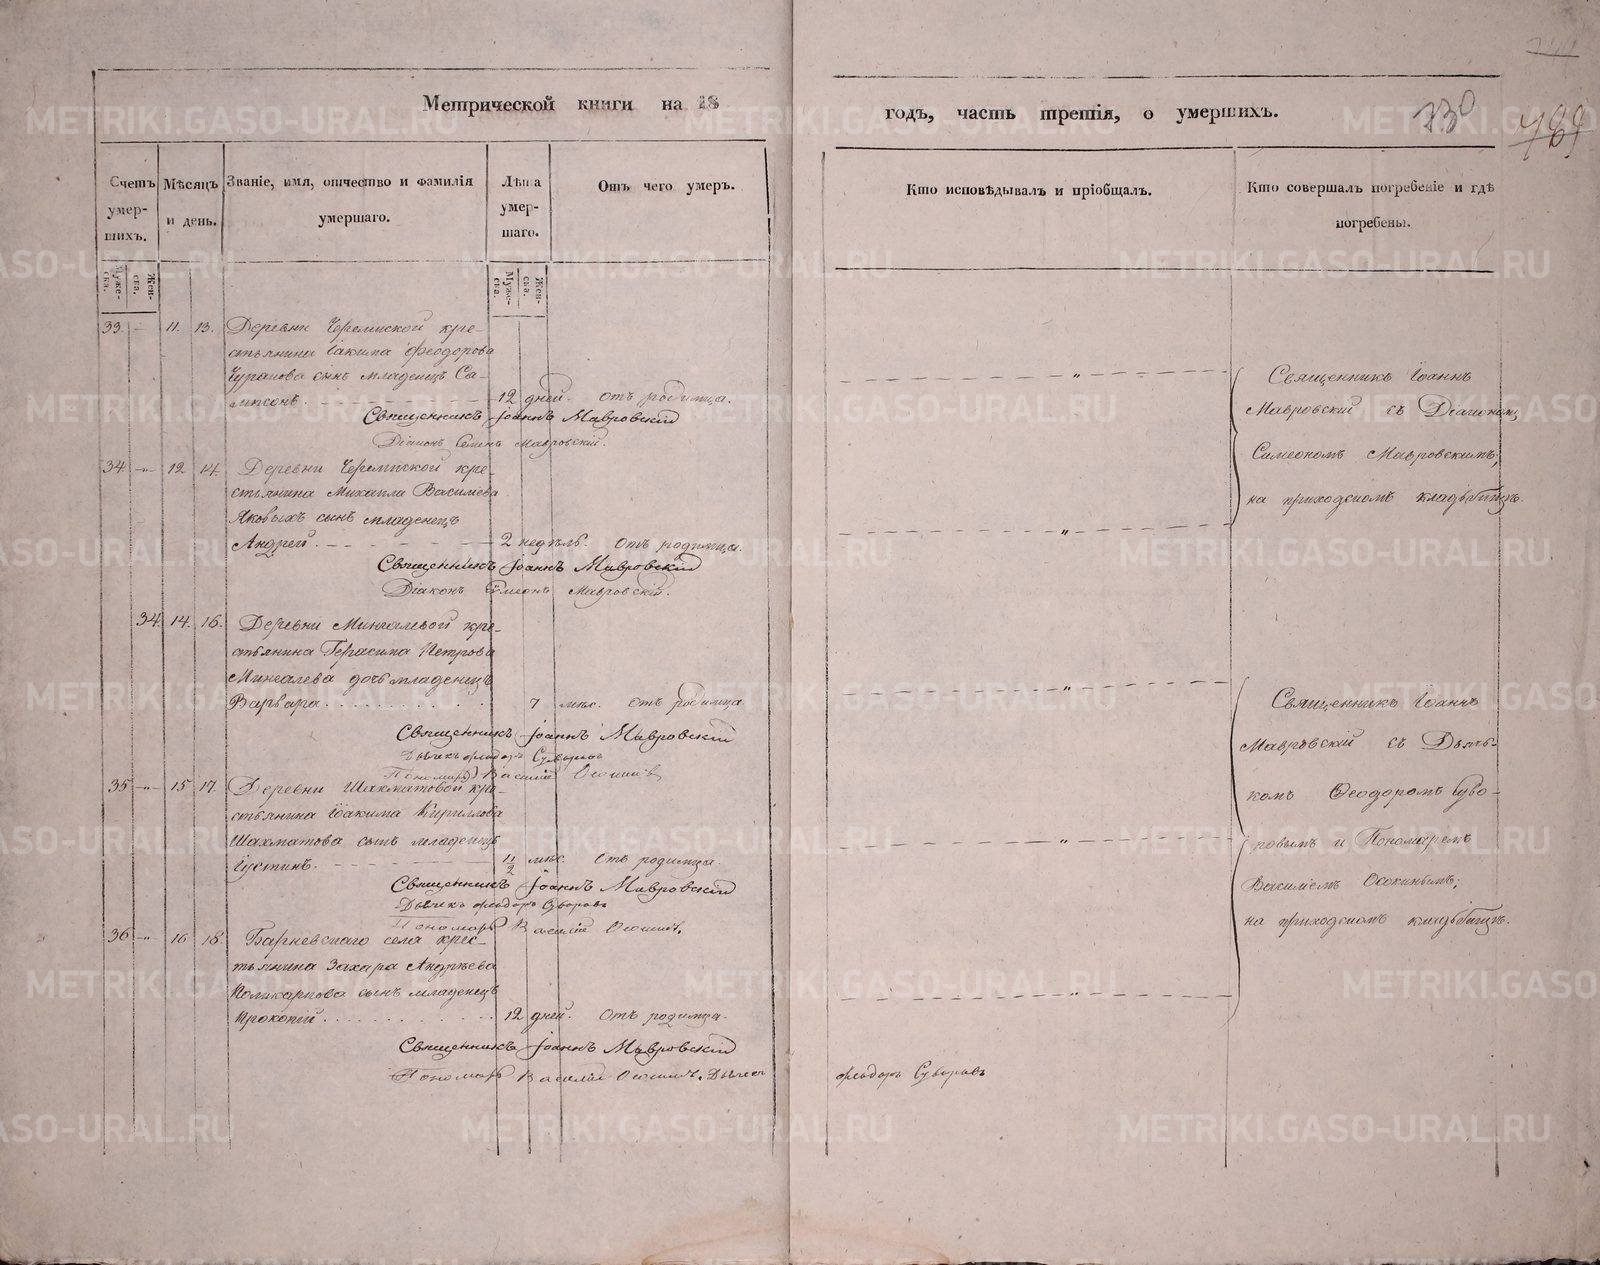 Метрической книги на 18
годъ, часть третія, о умершихъ.
730
789
Счетъ умер-шихъ.
Мѣсяцъ и день.
Званіе, имя, отчество и фамилія умершаго.
Лѣта умер-шаго.
Отъ чего умеръ.
Кто исповѣдывалъ и пріобщалъ.
Кто совершалъ погребеніе и гдѣ погребены.
Муже-ска.
Жен-ска.
Муже-ска.
Жен-ска.
33. 11. 13. Деревни Черемиской кре-
стьянина Іакима Феодорова
Чуранова сынъ младенецъ Са-
мпсонъ. 12 дней. Отъ родимца.
Священникъ Іоаннъ Мавровскій
Діаконъ Семенъ Мавровскій.
34. 12 14. Деревни Черемиской кре-
стьянина Михаила Васильева
Яковыхъ сынъ младенецъ
Андрей. 2 недѣль. Отъ родимца.
Священникъ Іоаннъ Мавровскій
Діаконъ Симеонъ Мавровскій.
Священникъ Іоаннъ
Мавровскій съ Діакономъ
Симеономъ Мавровскимъ,
на приходскомъ кладбищѣ.
34. 14. 16. Деревни Мингалевой кре-
стьянина Герасима Петрова
Мингалева дочь младенецъ
Варвара. 7 мѣс. Отъ родимца.
Священникъ Іоаннъ Мавровскій
Дьячекъ Феодоръ Суворовъ
Пономарь Василій Осокинъ
35 15 17. Деревни Шахматовой кре-
стьянина Іоакима Кириллова
Шахматова сынъ младенецъ
Іустинъ. 1 1/2 мѣс. Отъ родимца.
Священникъ Іоаннъ Мавровскій
Дьячекъ Феодоръ Суворовъ
Пономарь Василій Осокинъ.
36 16 18. Барневскаго села крес-
тьянина Захара Андреева
Поликарпова сынъ младенецъ
Прокопій. 12 дней. Отъ родимца.
Священникъ Іоаннъ Мавровскій
Пономарь Василій Осокинъ. Дьячекъ
Феодоръ Суворовъ
Священникъ Іоаннъ
Мавровскій съ Дьяч-
комъ Феодоромъ Суво-
ровымъ и Пономаремъ
Василіемъ Осокинымъ;
на приходскомъ кладбищѣ.
METRIKI.GASO-URAL.RU